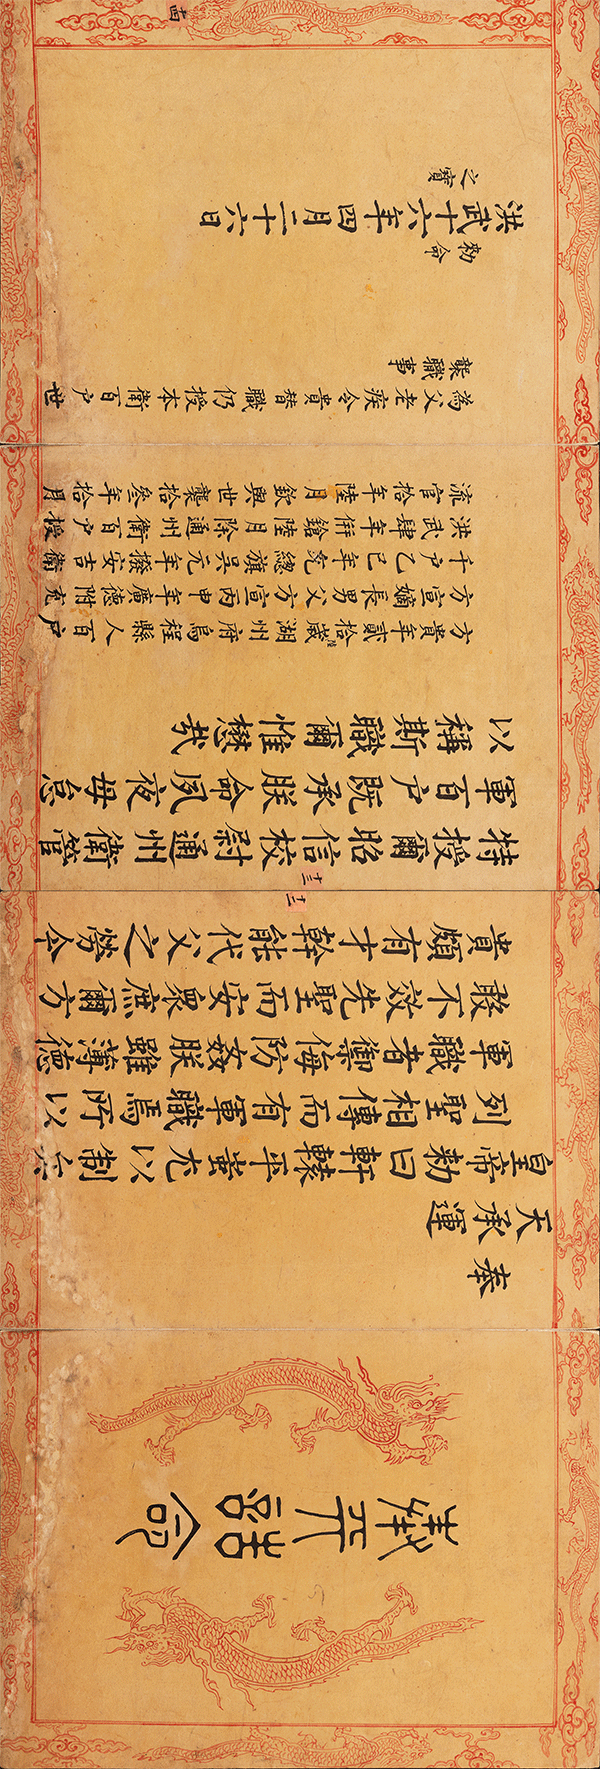 誥命
奉
天承運
皇帝勅曰軒轅平蚩尤以制兵
列聖相傳而有軍職焉所以
軍職者禦侮防姦朕雖薄德
敢不效先聖而安衆庶爾方
貴頗有才幹能代父之勞今
十二
十三
特授爾昭信校尉通州衛管
軍百户既承朕命夙夜毋怠
以稱斯職爾惟懋哉
方貴年貳拾歲係湖州府烏程縣人百户
方宣嫡長男父方宣丙申年廣德附充
千户乙巳年充總旗吳元年撥安吉衛
洪武肆年併鎗陸月除通州衛百户授
流官拾年陸月欽與世襲拾叁年拾月
為父老疾令貴替職仍授本衛百户世
襲職事
勅命
洪武十六年四月二十六日
之寶
十四